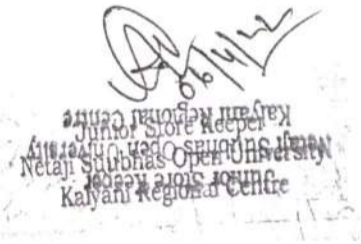 06/4/22
Junior Store Keeper
Netaji Subhas Open University
Kalyani Regional Centre